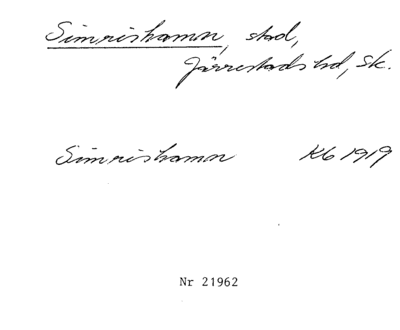 Simrishamn, stad,
Järrestads hd, Sk.
Simrishamn Kb 1919
Nr 21962